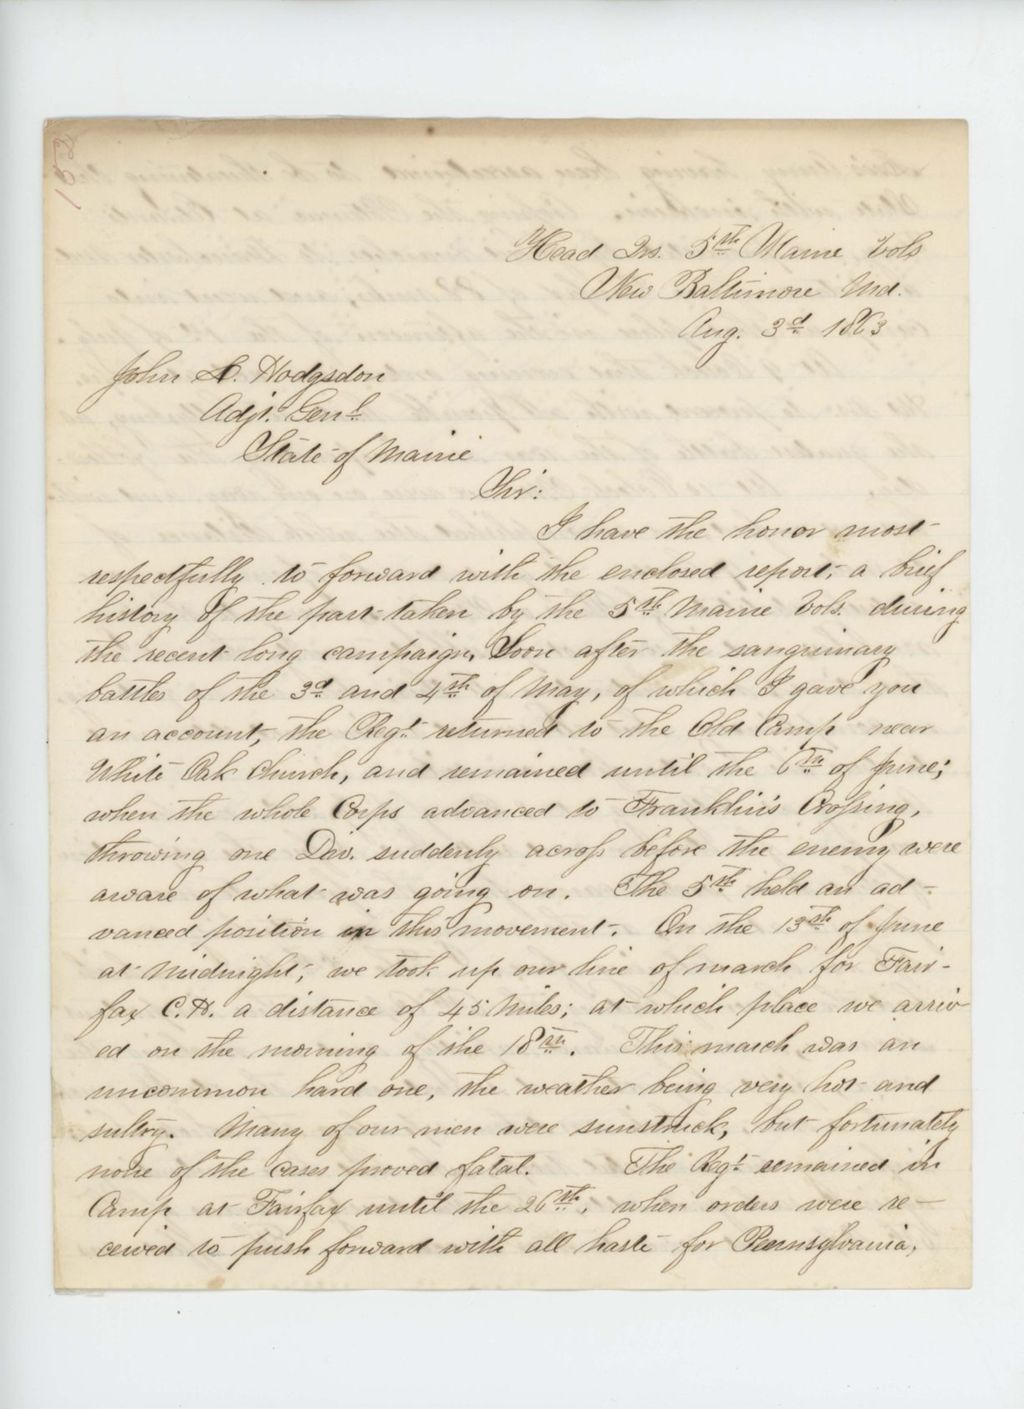 Head Qrs. 5th Maine Vols
New Baltimore Md.
Aug. 3d 1863
John L. Hodgsdon
Adjt. Genl
State of Maine
Sir:
I have the honor most
respectfully to forward with the enclosed report, a brief
history of the part taken by the 5th Maine Vols. during
the recent long campaign. Soon after the sanguinary
battles of the 3d and 4th of May, of which I gave you
an account, the Regt returned to the Old Camp near
White Oak Church, and remained until the 6th of June;
when the whole Corps advanced to Franklin's Crossing,
throwing one Div. suddenly across before the enemy were
aware of what was going on. The 5th held an ad-
vanced position in this movement. On the 13th of June
at midnight, we took up our line of march for Fair-
fax C.H. a distance of 45 Miles; at which place we arriv
ed on the morning of the 18th. This march was an
uncommon hard one, the weather being very hot and
sultry. Many of our men were sunstruck, but fortunately
none of the cases proved fatal. The Regt remained in
Camp at Fairfax until the 26th, when orders were re-
ceived to push forward with all haste for Pennsylvania,